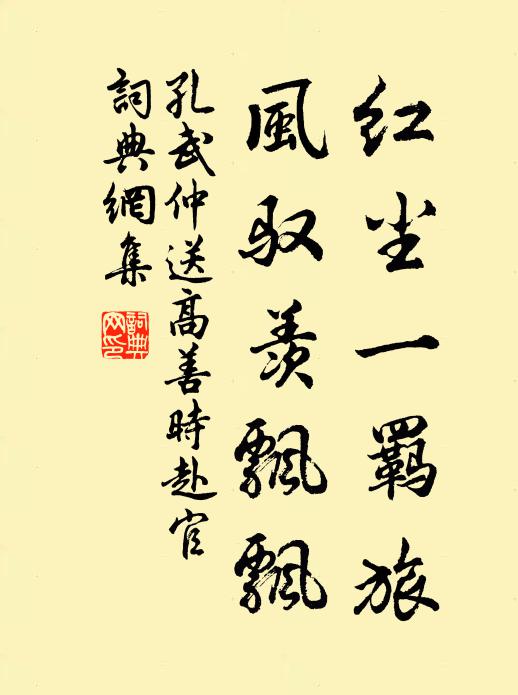 红尘一羁旅
風驭羨飄飄
孔武仲送高善時赴官
詞典網集
詞典
网印